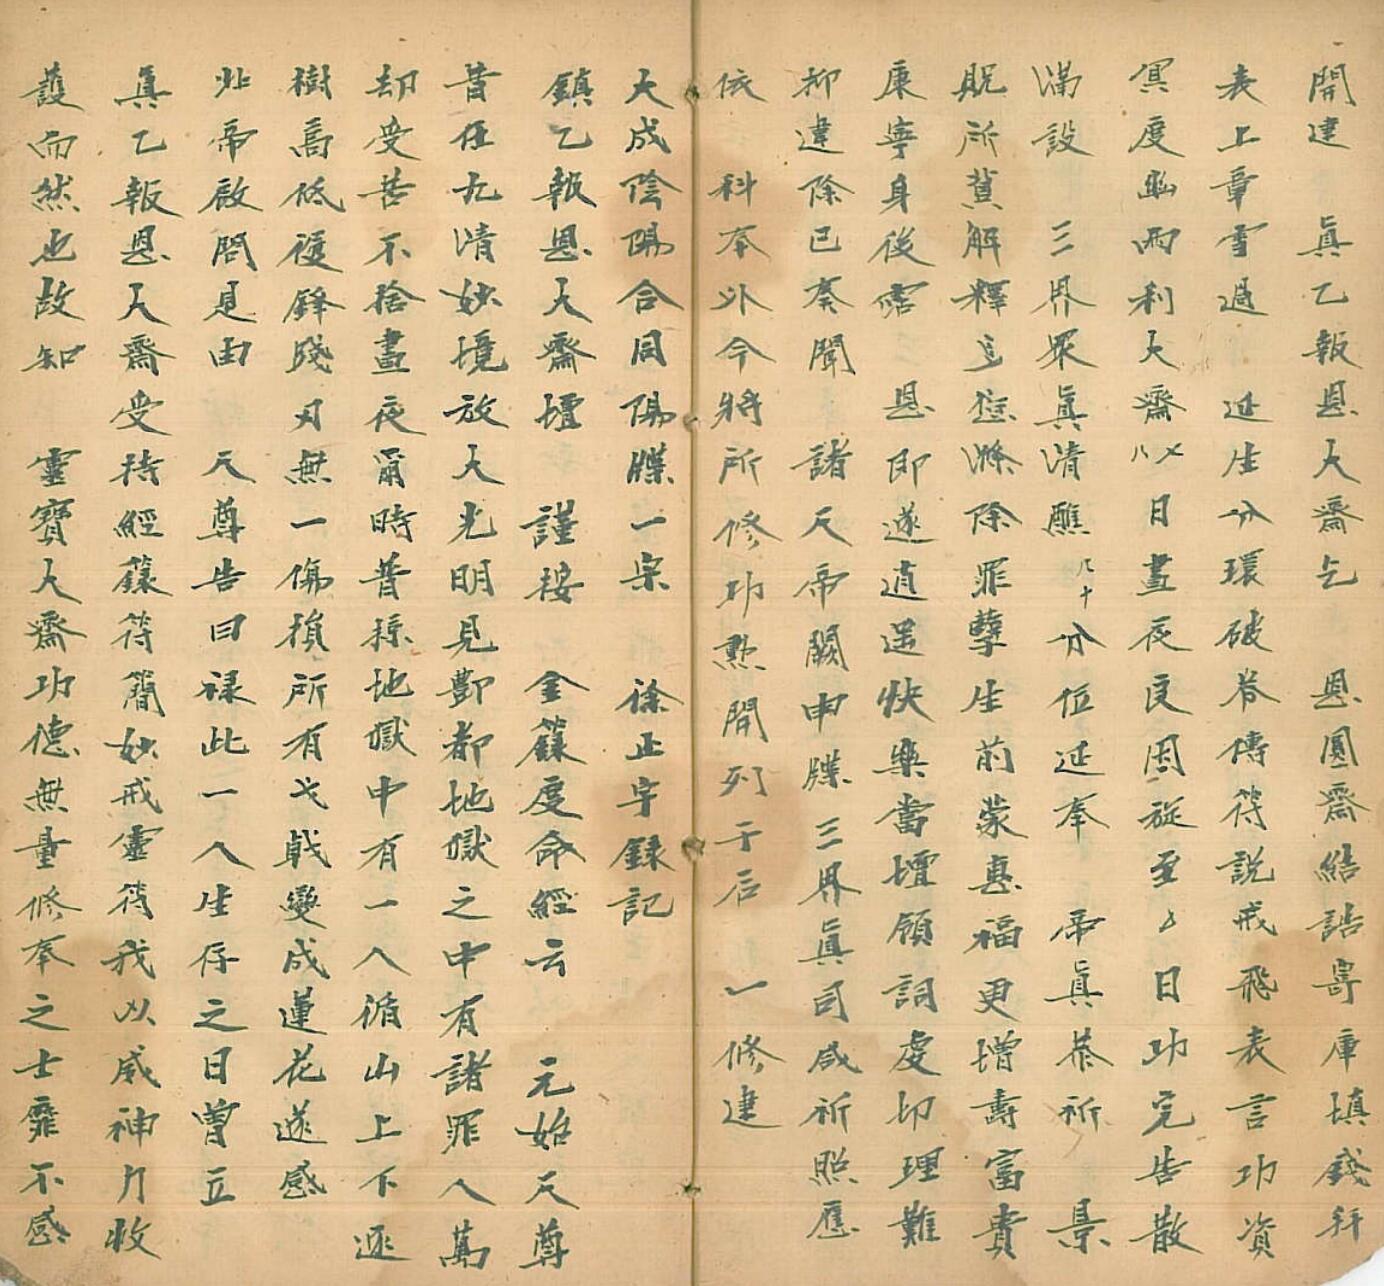 開建 眞乙報恩大齋乞 恩圓齋結誥寄庫填錢拜
表上章雪過 延生分環破券傳符說戒飛表言功資
冥度幽兩利大齋以 日晝夜良因旋至 日功完告散
滿設 三界眾眞清醮 分位延奉 帝眞恭祈 景
貺所冀解釋 愆滌除罪孽生前蒙惠福更增壽富貴
康寧身後霑 恩即遂逍遥快樂當壇領詞虔切理難
抑違除已奏聞 諸天帝闕申牒三界眞司咸祈照應
依 科奉外今將所修功勲開列于后 一修建
大成陰陽合同陽牒一宗 徐正字録記
鎮乙報恩大齋壇 謹按 金籙度命經云 元始天尊
昔在九清妙境放大光明見酆都地獄之中有諸罪人萬
却受苦不捨晝夜爾時普掠地獄中有一人循山上下逐
樹高低稜鋒殘刃無一傷損所有戈戟變成蓮花遂感
北帝啟問是由 天尊告曰禄此一人生存之日曽立
眞乙報恩大齋受持經籙符簡妙戒靈符我以威神力收
護而然也故知 靈寶大齋功德無量修奉之士靡不感